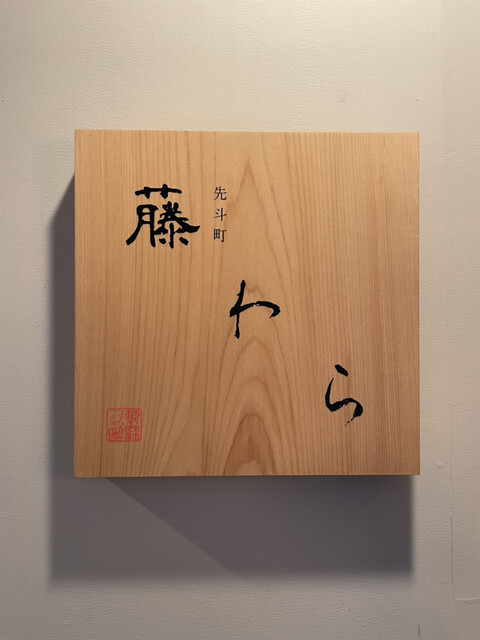 先斗町
藤わら